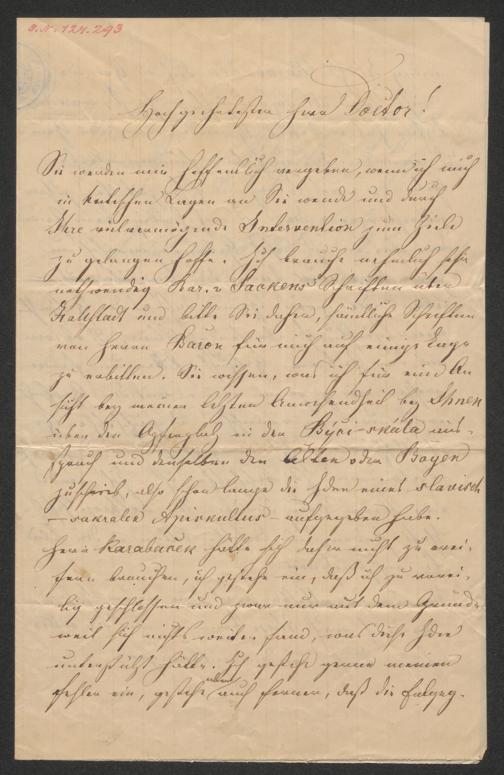 J.N. 124.293
Hochgeehrtester Herr Doctor!
Sie werden mir hoffentlich vergeben, wenn ich mich
in kritischen Lagen an Sie wende und durch
Ihre vielvermögende Intervention zum Ziele
zu gelangen hoffe. Ich brauche nehmlich sehr
nothwendig Bar. v Sackens Schriften über
Hallstadt und bitte Sie daher, sämtliche Schriften
von Herrn Baron für mich auf einige Tage
zu erbitten. Sie wissen, was ich für eine An
sicht bey meiner letzten Anwesendheit bey Ihnen
über den Opferplatz in der Býčí-skála aus-
sprach und denselben den Celten oder Bojen
zuschrieb, also schon lange die Idee eines slavisch
-sakralen Apiskultus aufgegeben habe.
Herr Karabaček hätte sich daher nicht zu erei-
fern brauchen, ich gestehe ein, daß ich zu vorei-
lig geschlossen und zwar nur aus dem Grunde
weil sich nichts weiter fand, was diese Idee
unterstützt hätte. Ich gestehe gerne meinen
Fehler ein, gestehe aber auch ferner, daß die Entgeg-